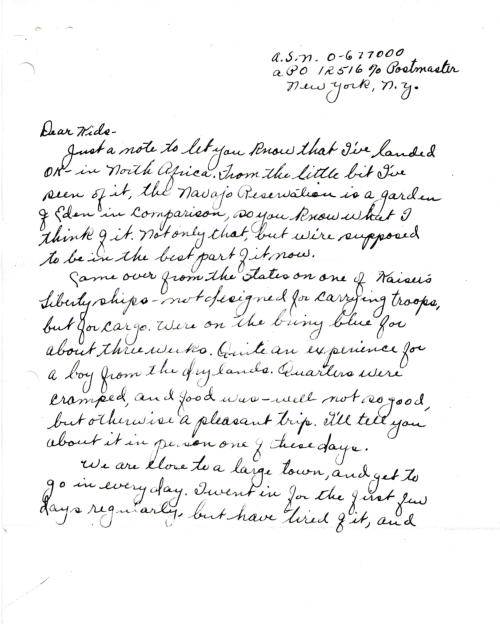 A.S.N. O-677000
APO 12516 % Postmaster
New York, N.Y.
Dear Kids-
Just a note to let you know that I've landed
OK- in North Africa. From the little bit I've
seen of it, the Navajo Reservation is a garden
of Eden in comparison, so you know what I
think of it. Not only that, but we're supposed
to be in the best part of it now.
Came over from the States on one of Kaiser's
Liberty ships - not designed for carrying troops,
but for cargo. Were on the briny blue for
about three weeks. Quite an experience for
a boy from the dry lands. Quarters were
cramped, and food was - well not so good,
but otherwise a pleasant trip. I'll tell you
about it in person one of these days.
We are close to a large town, and get to
go in every day. I went in for the first few
days regularly, but have tired of it, and